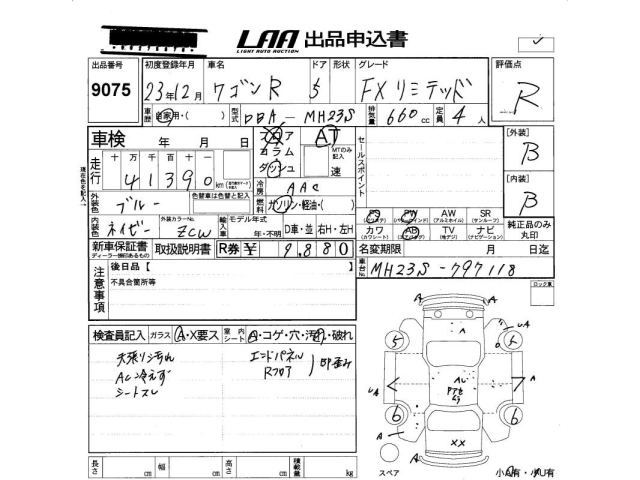 LAA 出品申込書
LIGHT AUTO AUCTION
出品番号 初度登録年月 車名 ドア 形状 グレード 評価点
9075 23年12月 ワゴンR 5 FXリミテッド R
車歴 自家用・( ) 型式 DBA-MH23S 排気量 660cc 定員 4人
車検 年 月 日
フロア AT
コラム MTのみ記入
ダッシュ 速
セールスポイント
[外装]
B
[内装]
B
走行 十万千百十一
41390 km
冷房 AAC
外装色 ブルー 色替車は色替と記入
燃料 ガソリン・軽油・( )
内装色 ネイビー 外装カラーNo. ZCW
輸入車 モデル年式 年・不明 D車・並 右H・左H
PS PW AW SR
(パワステ) (パワーウインド) (アルミホイル) (サンルーフ)
カワ AB TV ナビ
(カワシート) (エアバック) (地デジ) (ナビゲーション)
純正品のみ丸印
新車保証書 取扱説明書 R券 ¥ 9,880
ディーラー捺印あるもの
名変期限 月 日迄
車台No. MH23S-797118
ロック車
注意事項
後日品【
不具合箇所等
検査員記入 ガラス A・X要ス 室内シート A・コゲ・穴・汚れ・破れ
天張り汚れ
ACに冷えず
シートスレ
エンドパネル
Rフロア
歪み
A A
5 5
UA A
AU
UA A
6 6
A
XX
スペア
小A有・小U有
長さ cm 幅 cm 高さ cm 積載量 kg